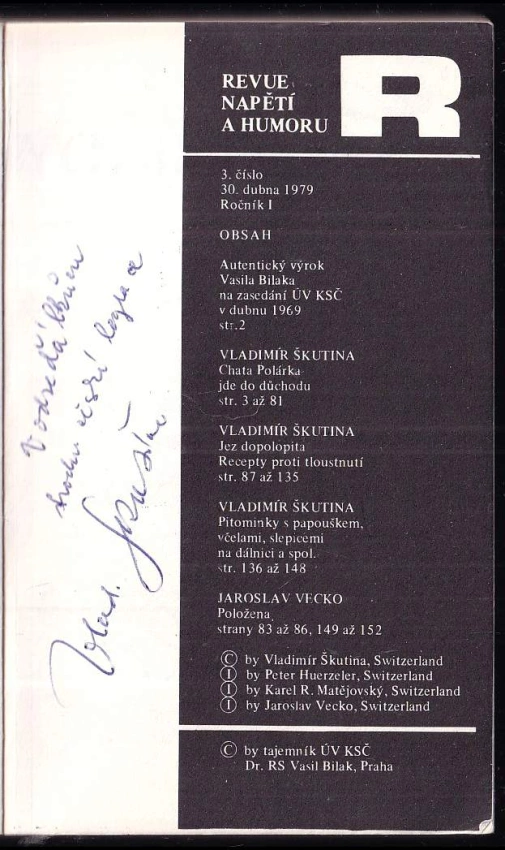 REVUE
NAPĚTÍ
A HUMORU
R
3. číslo
30. dubna 1979
Ročník I
OBSAH
Autentický výrok
Vasila Bilaka
na zasedání ÚV KSČ
v dubnu 1969
str.2
VLADIMÍR ŠKUTINA
Chata Polárka
jde do důchodu
str. 3 až 81
VLADIMÍR ŠKUTINA
Jez dopolopita
Recepty proti tloustnutí
str. 87 až 135
VLADIMÍR ŠKUTINA
Pitominky s papouškem,
včelami, slepicemi
na dálnici a spol.
str. 136 až 148
JAROSLAV VECKO
Položena
strany 83 až 86, 149 až 152
Ⓒ by Vladimír Škutina, Switzerland
Ⓘ by Peter Huerzeler, Switzerland
Ⓘ by Karel R. Matějovský, Switzerland
Ⓘ by Jaroslav Vecko, Switzerland
Ⓒ by tajemník ÚV KSČ
Dr. RS Vasil Bilak, Praha
trochu
Vlad. Škutina